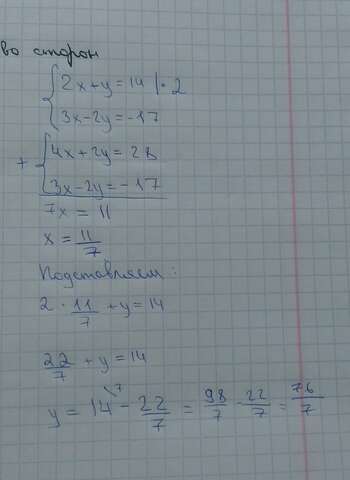 во сторон
{2x+y=14 |·2
{3x-2y=-17
+ {4x+2y=28
{3x-2y=-17
7x = 11
x = 11/7
Подставляем:
2 · 11/7 + y = 14
22/7 + y = 14
y = 14\7 - 22/7 = 98/7 - 22/7 = 76/7